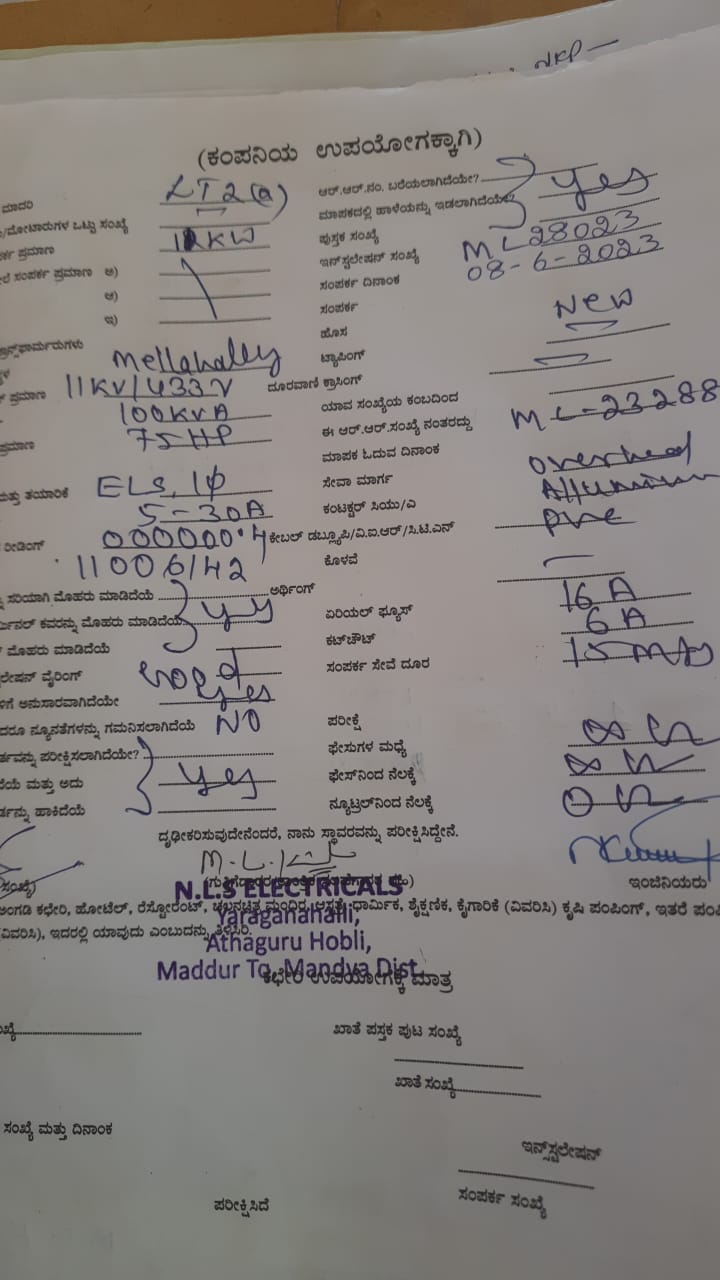 NKP
(ಕಂಪನಿಯ ಉಪಯೋಗಕ್ಕಾಗಿ)
ಮಾದರಿ LT2(a) ಆರ್.ಆರ್.ನಂ. ಬರೆಯಲಾಗಿದೆಯೇ?
ಮೋಟಾರುಗಳ ಒಟ್ಟು ಸಂಖ್ಯೆ ಮಾಪಕದಲ್ಲಿ ಹಾಳೆಯನ್ನು ಇಡಲಾಗಿದೆಯೇ? Yes
ಪ್ರಮಾಣ 1KW ಪುಸ್ತಕ ಸಂಖ್ಯೆ
ಸಂಪರ್ಕ ಪ್ರಮಾಣ ಅ) ಇನ್‌ಸ್ಟಲೇಷನ್ ಸಂಖ್ಯೆ ML28023
ಆ) ಸಂಪರ್ಕ ದಿನಾಂಕ 08-6-2023
ಇ) ಸಂಪರ್ಕ
ಹೊಸ New
ಟ್ರಾನ್ಸ್‌ಫಾರ್ಮರುಗಳು
Mellahalley ಟ್ಯಾಪಿಂಗ್
ಪ್ರಮಾಣ 11KV/433V ದೂರವಾಣಿ ಕ್ರಾಸಿಂಗ್
100KVA ಯಾವ ಸಂಖ್ಯೆಯ ಕಂಬದಿಂದ
ಪ್ರಮಾಣ 75HP ಈ ಆರ್.ಆರ್.ಸಂಖ್ಯೆ ನಂತರದ್ದು ML-23288
ಮಾಪಕ ಓದುವ ದಿನಾಂಕ
ಮತ್ತು ತಯಾರಿಕೆ ELS, 1Φ ಸೇವಾ ಮಾರ್ಗ overhead
5-30A ಕಂಡಕ್ಟರ್ ಸಿಯು/ಎ Alluminium
ರೀಡಿಂಗ್ 000000.4 ಕೇಬಲ್ ಡಬ್ಲ್ಯೂಪಿ/ವಿ.ಐ.ಆರ್/ಸಿ.ಟಿ.ಎಸ್ pvc
11006142 ಕೊಳವೆ
ಸರಿಯಾಗಿ ಮೊಹರು ಮಾಡಿದೆಯೆ ಅರ್ಥಿಂಗ್
ಕವರನ್ನು ಮೊಹರು ಮಾಡಿದೆಯೆ ಏರಿಯಲ್ ಫ್ಯೂಸ್ 16A
ಮೊಹರು ಮಾಡಿದೆಯೆ ಕಟ್‌ಔಟ್ 6A
ವೈರಿಂಗ್ ಸಂಪರ್ಕ ಸೇವೆ ದೂರ 15 mts
ಅನುಸಾರವಾಗಿದೆಯೇ yes
ನ್ಯೂನತೆಗಳನ್ನು ಗಮನಿಸಲಾಗಿದೆಯೆ NO ಪರೀಕ್ಷೆ
ಪರೀಕ್ಷಿಸಲಾಗಿದೆಯೇ? ಫೇಸುಗಳ ಮಧ್ಯೆ ∞
ಮತ್ತು ಅದು Yes ಫೇಸ್‌ನಿಂದ ನೆಲಕ್ಕೆ ∞
ಹಾಕಿದೆಯೆ ನ್ಯೂಟ್ರಲ್‌ನಿಂದ ನೆಲಕ್ಕೆ 0
ದೃಢೀಕರಿಸುವುದೇನೆಂದರೆ, ನಾನು ಸ್ಥಾವರವನ್ನು ಪರೀಕ್ಷಿಸಿದ್ದೇನೆ.
ಇಂಜಿನಿಯರು
N.L.S ELECTRICALS
ಅಂಗಡಿ ಕಛೇರಿ, ಹೋಟೆಲ್, ರೆಸ್ಟೋರೆಂಟ್, ಚಲನಚಿತ್ರ ಮಂದಿರ, ಆಸ್ಪತ್ರೆ, ಧಾರ್ಮಿಕ, ಶೈಕ್ಷಣಿಕ, ಕೈಗಾರಿಕೆ (ವಿವರಿಸಿ) ಕೃಷಿ ಪಂಪಿಂಗ್, ಇತರೆ
Yaraganahalli,
(ವಿವರಿಸಿ), ಇದರಲ್ಲಿ ಯಾವುದು ಎಂಬುದನ್ನು ತಿಳಿಸಿರಿ.
Athaguru Hobli,
Maddur Tq, Mandya Dist.
ಕಛೇರಿ ಉಪಯೋಗಕ್ಕೆ ಮಾತ್ರ
ಖಾತೆ ಪುಸ್ತಕ ಪುಟ ಸಂಖ್ಯೆ
ಖಾತೆ ಸಂಖ್ಯೆ
ಸಂಖ್ಯೆ ಮತ್ತು ದಿನಾಂಕ
ಇನ್ಸ್‌ಸ್ಟಲೇಷನ್
ಸಂಪರ್ಕ ಸಂಖ್ಯೆ
ಪರೀಕ್ಷಿಸಿದೆ